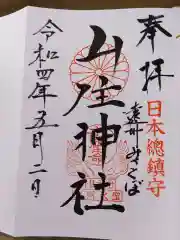 奉拝
日本總鎮守
遠州 みさくぼ
山住神社
令和四年五月二日